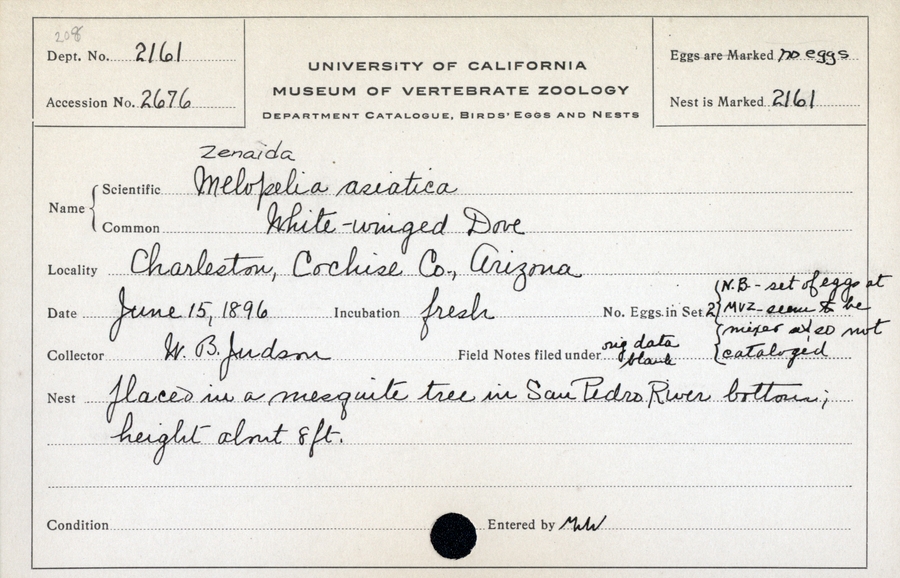 208
Dept. No. 2161
Accession No. 2676
UNIVERSITY OF CALIFORNIA
MUSEUM OF VERTEBRATE ZOOLOGY
DEPARTMENT CATALOGUE, BIRDS' EGGS AND NESTS
Eggs are Marked no eggs
Nest is Marked 2161
Zenaida
Name
Scientific Melopelia asiatica
Common White-winged Dove
Locality Charleston, Cochise Co., Arizona
Date June 15, 1896 Incubation fresh No. Eggs in Set 2
N.B - set of eggs at
MVZ - seem to be
mixed so not
cataloged
Collector W. B. Judson Field Notes filed under orig data
blank
Nest placed in a mesquite tree in San Pedro River bottom;
height about 8 ft.
Condition Entered by